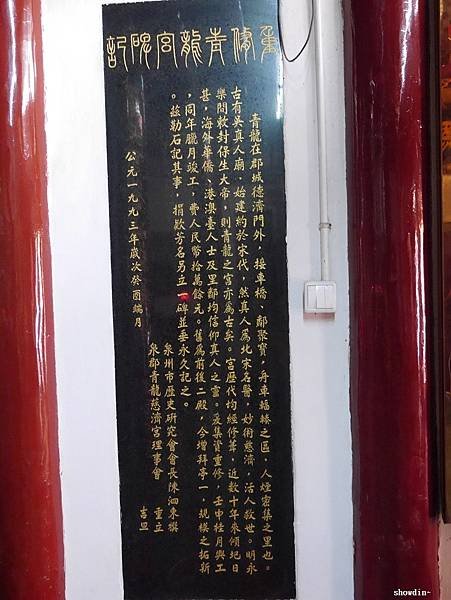 重修青龍宮碑記
青龍在郡城德濟門外,接車橋,鄰聚寶,舟車輻輳之區,人煙密集之里也。
古有吳真人廟,始建約於宋代,然真人為北宋名醫,妙術慈濟,活人救世。明永
樂間敕封保生大帝,則青龍之宮亦為古矣。宮歷代均經修葺,近數十年來傾圮日
甚,海外華僑、港澳臺人士及里鄰均信仰真人之靈。爰集資重修,壬申桂月興工
,同年臘月竣工,費人民幣拾萬餘元。舊為前後二殿,今增拜亭一,規模之拓新
。茲勒石記其事,捐款芳名另立一碑並垂永久記之。
泉州市歷史研究會會長陳泗東撰
泉郡青龍慈濟宮理事會 重立
公元一九九三年歲次癸酉端月 吉旦
showdin~